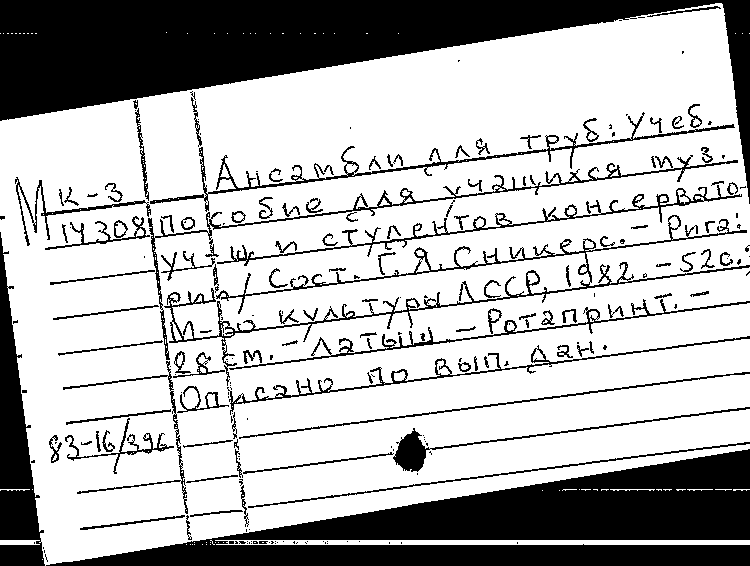 Ансамбли для труб: Учеб.
М К-3
14308 пособие для учащихся муз.
уч-щ и студентов консервато
рии / Сост. Г. Я. Сникерс. - Рига:
М-во культуры ЛССР, 1982. - 52 с.;
28 см. - Латыш. - Ротапринт. -
Описано по вып. дан.
83-16/396